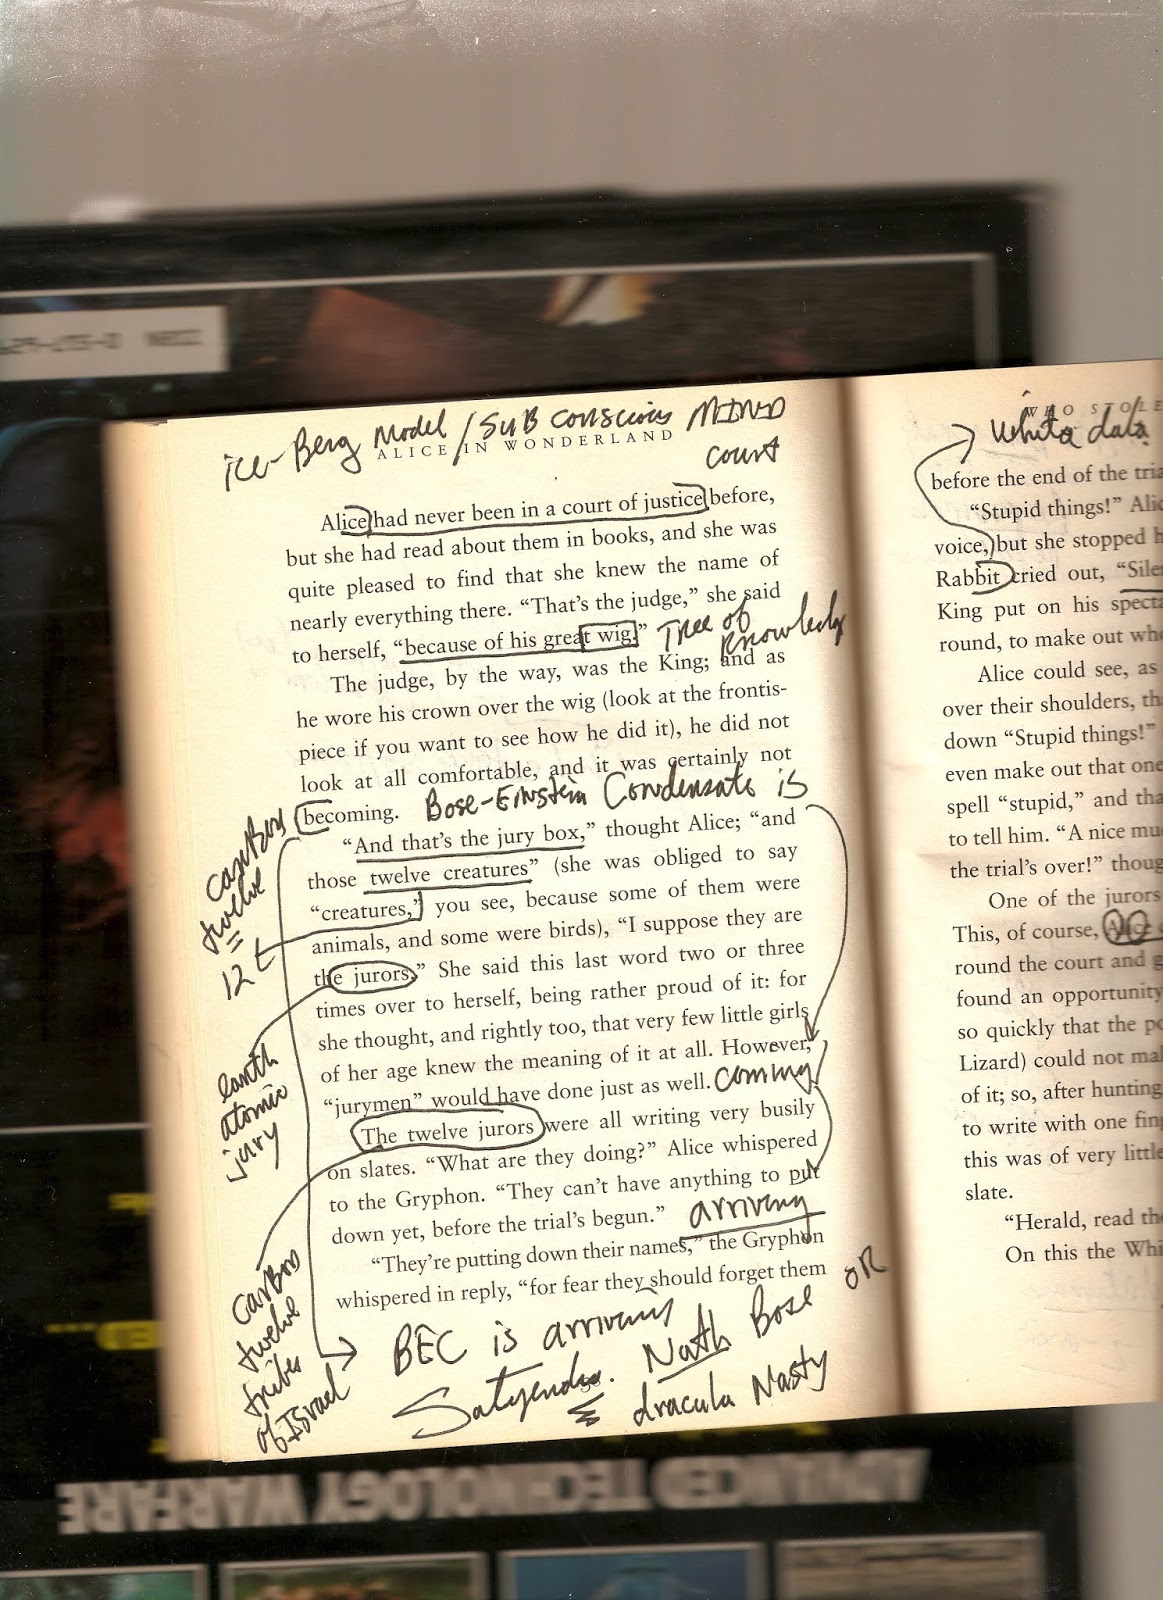 ice-Berg Model / SUB conscious MIND
court
ALICE IN WONDERLAND
Alice had never been in a court of justice before,
but she had read about them in books, and she was
quite pleased to find that she knew the name of
nearly everything there. “That’s the judge,” she said
to herself, “because of his great wig.”
Tree of
knowledge
The judge, by the way, was the King; and as
he wore his crown over the wig (look at the frontis-
piece if you want to see how he did it), he did not
look at all comfortable, and it was certainly not
becoming.
Bose-Einstein Condensate is
“And that’s the jury box,” thought Alice; “and
those twelve creatures” (she was obliged to say
“creatures,” you see, because some of them were
animals, and some were birds), “I suppose they are
the jurors.” She said this last word two or three
times over to herself, being rather proud of it: for
she thought, and rightly too, that very few little girls
of her age knew the meaning of it at all. However,
“jurymen” would have done just as well.
coming
The twelve jurors were all writing very busily
on slates. “What are they doing?” Alice whispered
to the Gryphon. “They can’t have anything to put
down yet, before the trial’s begun.”
arriving
“They’re putting down their names,” the Gryphon
whispered in reply, “for fear they should forget them
carbon
twelve
12
earth
atomic
jury
carbon
twelve
tribes
of Israel
BEC is arriving
Satyendra Nath Bose OR
dracula Nasty
WHO STOLE
white data
before the end of the tria
“Stupid things!” Alic
voice, but she stopped h
Rabbit cried out, “Sile
King put on his specta
round, to make out wh
Alice could see, as
over their shoulders, th
down “Stupid things!”
even make out that one
spell “stupid,” and tha
to tell him. “A nice mu
the trial’s over!” thoug
One of the jurors
This, of course, Alice
round the court and g
found an opportunity
so quickly that the po
Lizard) could not mak
of it; so, after hunting
to write with one fing
this was of very little
slate.
“Herald, read the
On this the Whi
ADVANCED TECHNOLOGY WARFARE